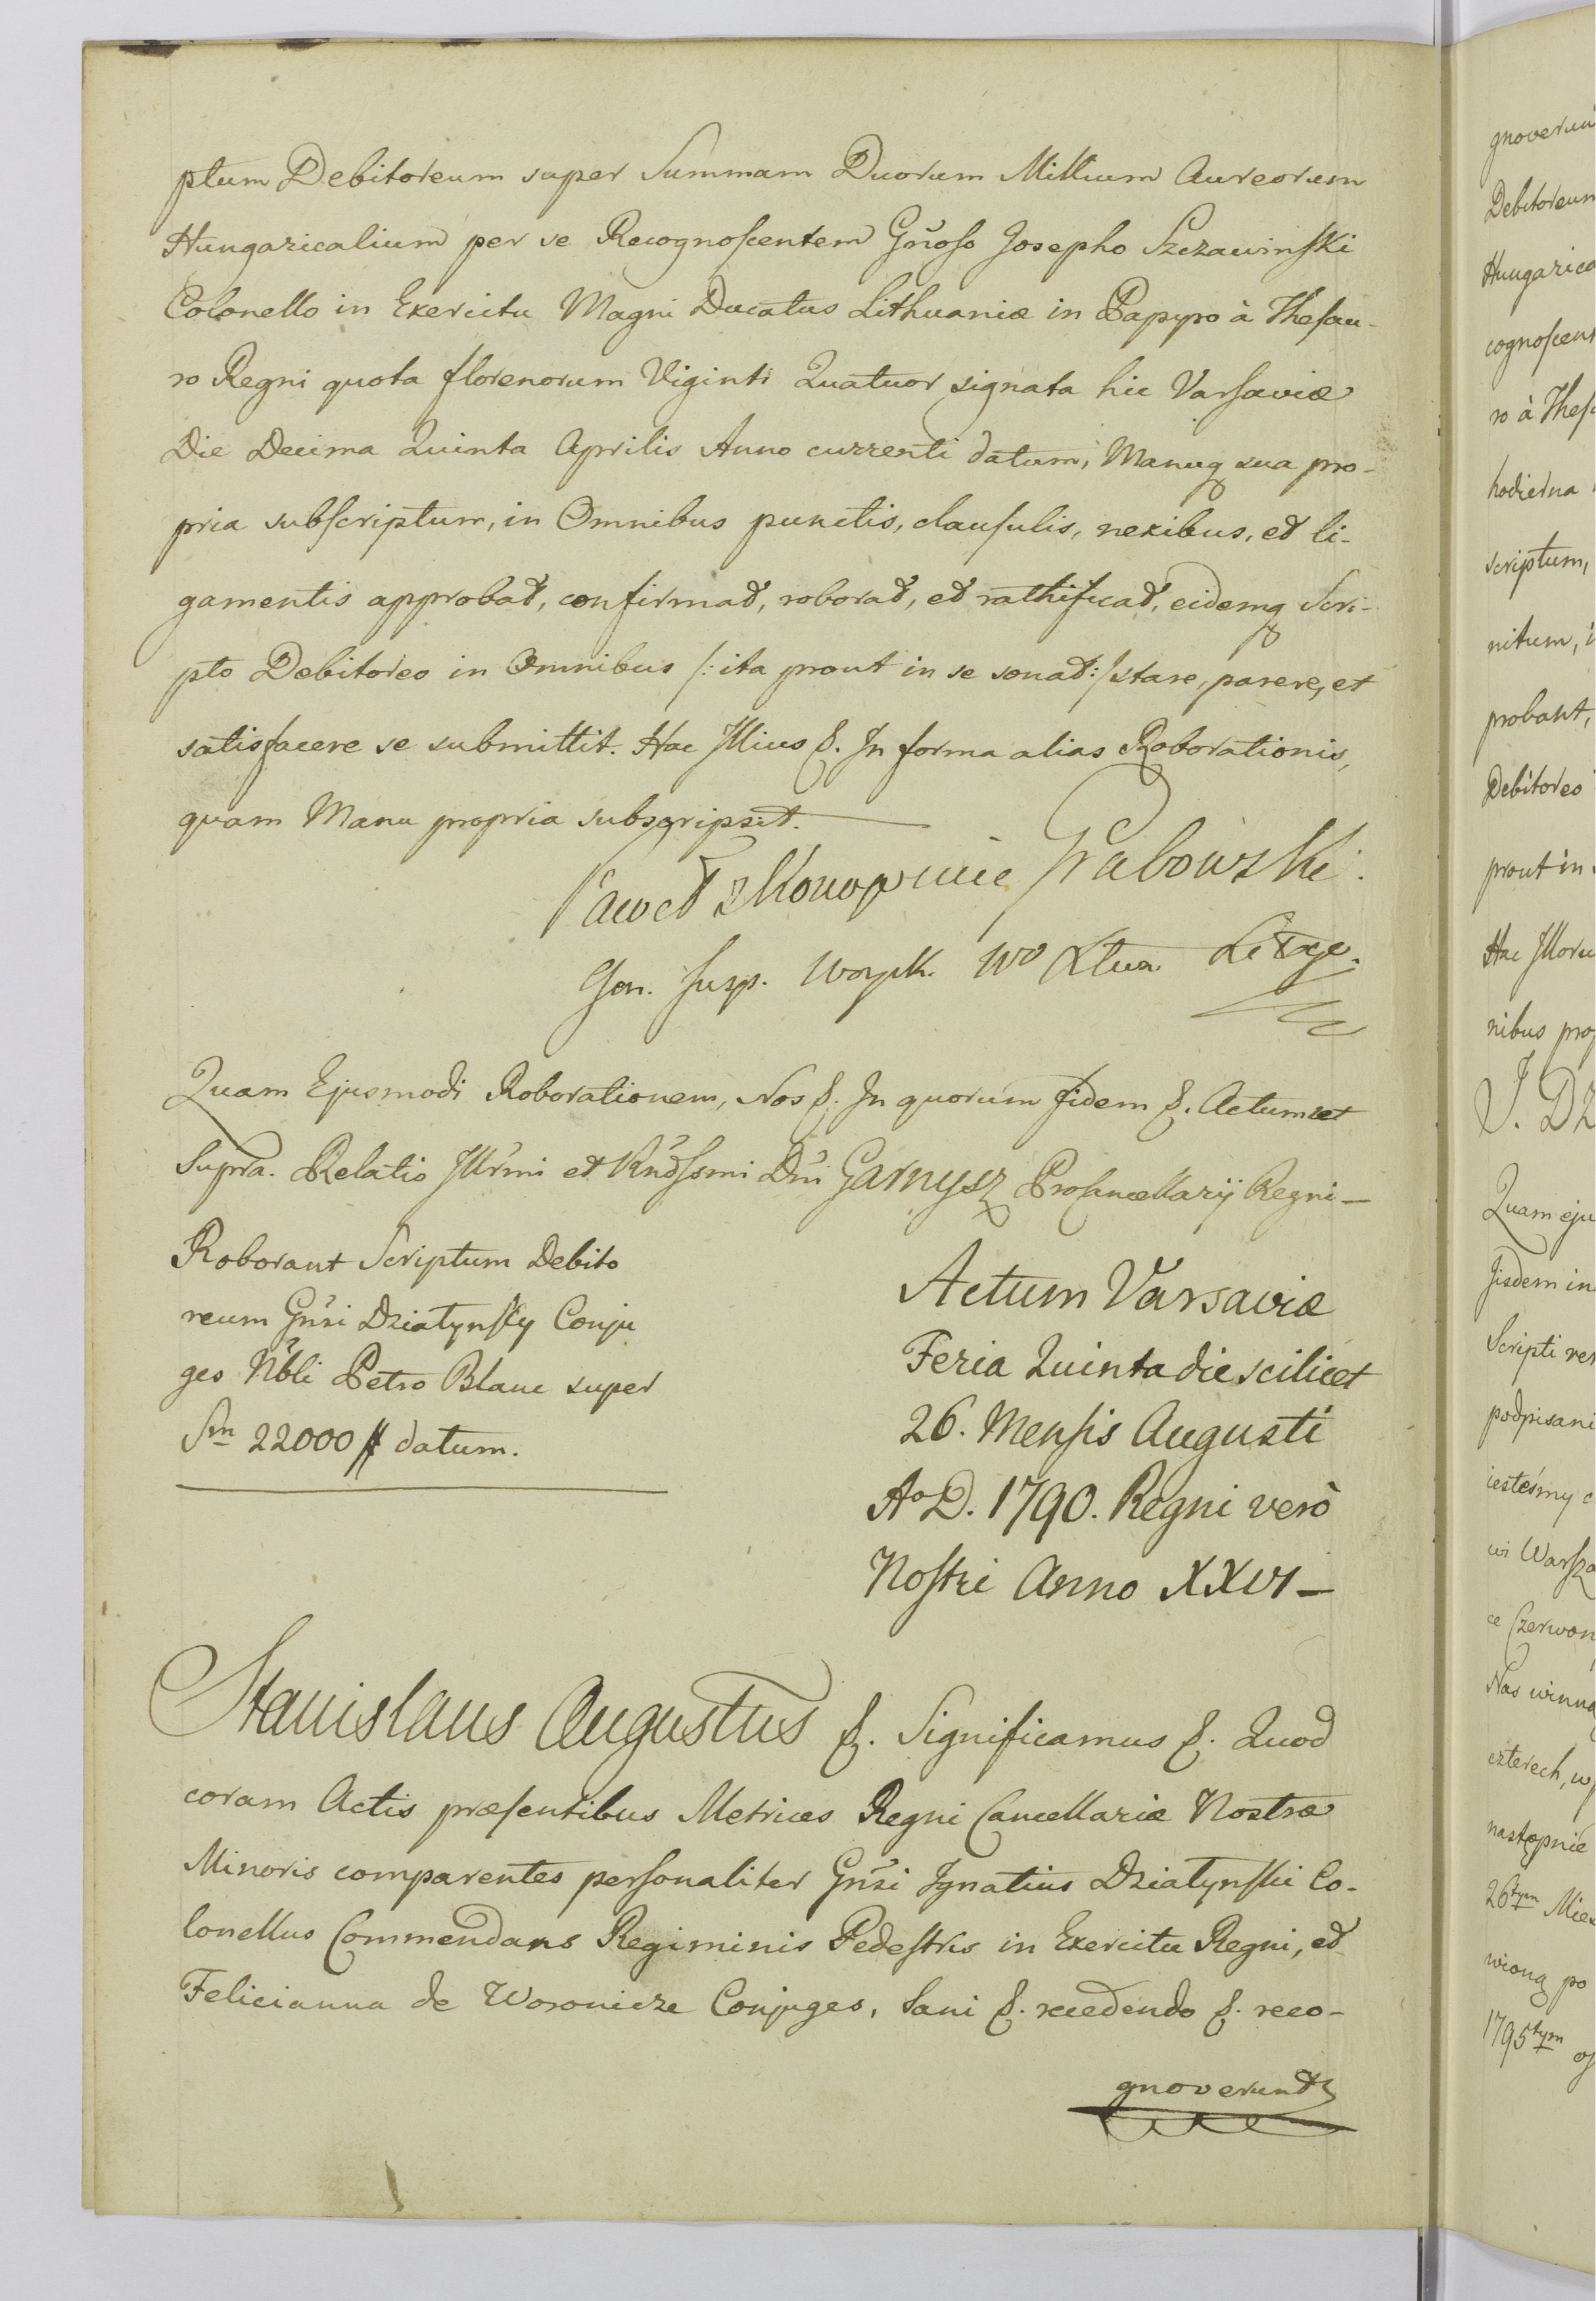 ptum Debitoreum super Summam Duorum Millium Aureorum
Hungaricalium per se Recognoscentem Gnŏso Josepho Szczawinski
Colonello in Exercitu Magni Ducatus Lithuaniæ in Papyro à Thesau-
ro Regni quota florenorum Viginti Quatuor signata hic Varsaviæ
Die Decima Quinta Aprilis Anno currenti datum, Manuq sua pro-
pria subscriptum, in Omnibus punctis, clausulis, nexibus, et li-
gamentis approbat, confirmat, roborat, et rathificat, eidemq Scri-
pto Debitoreo in Omnibus /: ita prout in se sonat :/ stare, parere, et
satisfacere se submittit. Hac Illius &. In forma alias Roborationis,
quam Manu propria subscripsit.
Paweł z Konopnice Grabowski.
Gen. Insp. Woysk. Wo Xtua Litxe.
Quam Ejusmodi Roborationem, Nos &. In quorum fidem &. Actum ut
Supra. Relatio Illr̃mi et Rnd̃ssmi Dñi Garnysz ProCancellarij Regni —
Roborant Scriptum Debito
reum Gnr̃si Działynsky Conju
ges Nb̃li Petro Blanc super
Sm 22000 # datum.
Actum Varsaviæ
Feria Quinta die scilicet
26. Mensis Augusti
Ao D. 1790. Regni verò
Nostri Anno XXVI —
Stanislaus Augustus &. Significamus &. Quod
coram Actis præsentibus Metrices Regni Cancellariæ Nostræ
Minoris comparentes personaliter Gnr̃si Ignatius Działynski Co-
lonellus Commendans Regiminis Pedestris in Exercitu Regni, et
Felicianna de Woronicze Conjuges, Sani &. recedendo &. reco-
gnoverunt
gnoverun
Debitoreum
Hungarica
cognoscent
ro à Thes
hodierna
scriptum,
nitum, i
probant,
Debitoreo
prout in
Hac Illoru
nibus pro
J. Dz
Quam eju
fisdem in
Scripti
podpisani
iesteśmy
wi Warsza
ce Czerwon
Nas winną
czterech, w
następnie
26tym Mies
wioną po
1795tym